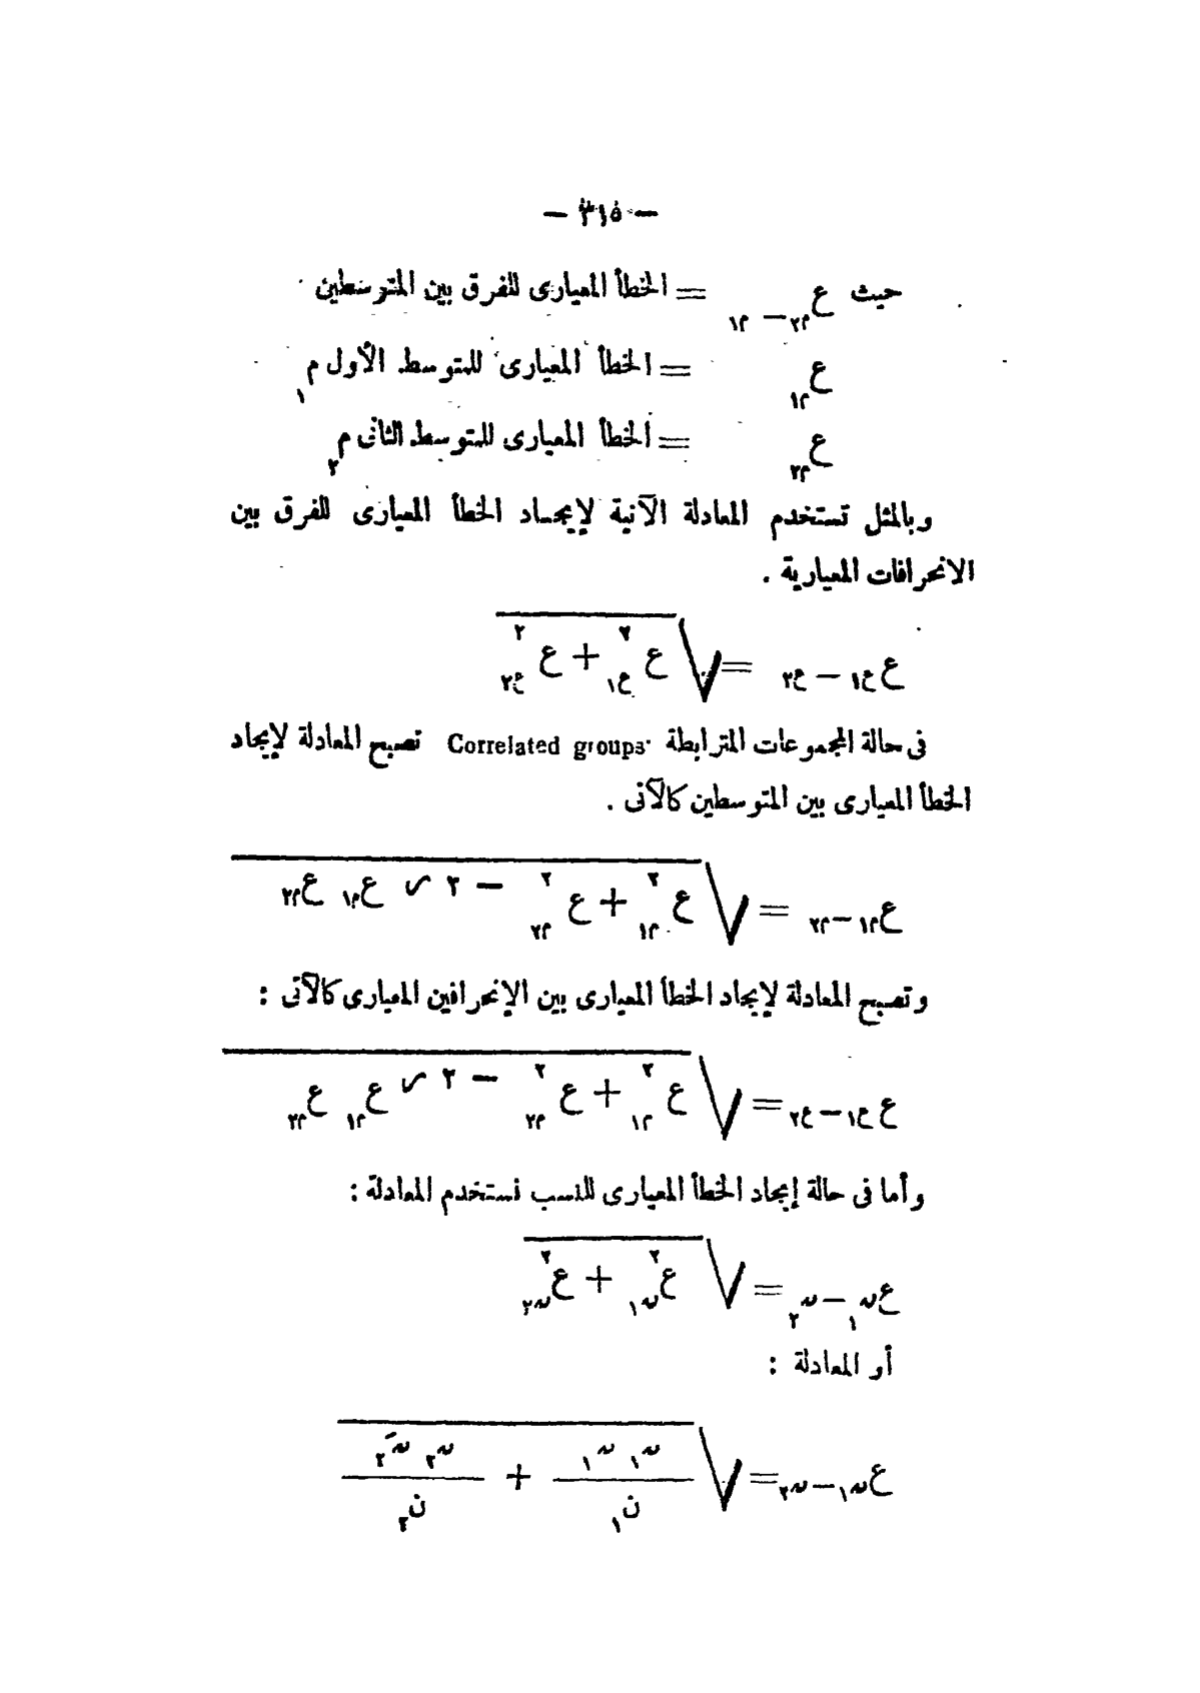 — ٣١٥ —
حيث ع م٢ — م١ = الخطأ المعيارى للفرق بين المتوسطين
ع م١ = الخطأ المعيارى للمتوسط الأول م١
ع م٢ = الخطأ المعيارى للمتوسط الثانى م٢
وبالمثل تستخدم المعادلة الآتية لإيجاد الخطأ المعيارى للفرق بين
الانحرافات المعيارية .
ع ع١ — ع٢ = √ ع٢ ع١ + ع٢ ع٢
فى حالة المجموعات المترابطة Correlated groups تصبح المعادلة لإيجاد
الخطأ المعيارى بين المتوسطين كالآتى .
ع م١ — م٢ = √ ع٢ م١ + ع٢ م٢ — ٢ ر ع م١ ع م٢
وتصبح المعادلة لإيجاد الخطأ المعيارى بين الإنحرافين المعيارى كالآتى :
ع ع١ — ع٢ = √ ع٢ م١ + ع٢ م٢ — ٢ ر ع م١ ع م٢
وأما فى حالة إيجاد الخطأ المعيارى للنسب نستخدم المعادلة :
ع س١ — س٢ = √ ع٢ س١ + ع٢ س٢
أو المعادلة :
ع س١ — س٢ = √ س١ س١ / ن١ + س٢ سَ٢ / ن٢